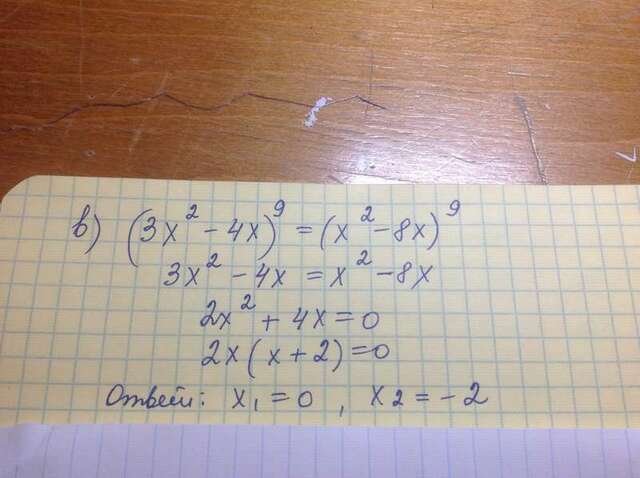 в) (3x² - 4x)⁹ = (x² - 8x)⁹
3x² - 4x = x² - 8x
2x² + 4x = 0
2x(x + 2) = 0
Ответ: x₁ = 0, x₂ = -2